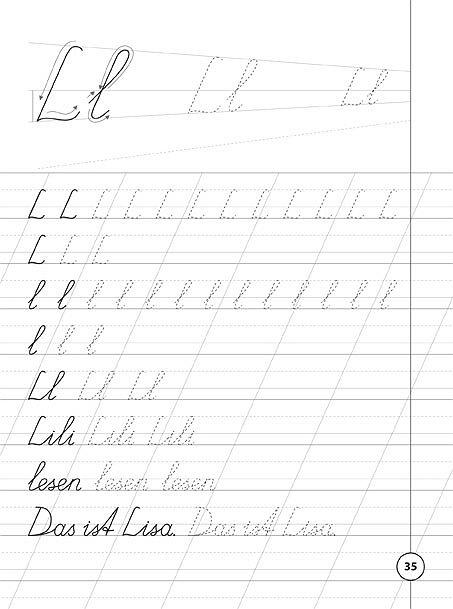 Ll Ll Ll
L L L L L L L L L L L L
L L L
l l l l l l l l l l l l l
l l l
Ll Ll Ll
Lili Lili Lili
lesen lesen lesen
Das ist Lisa. Das ist Lisa.
35